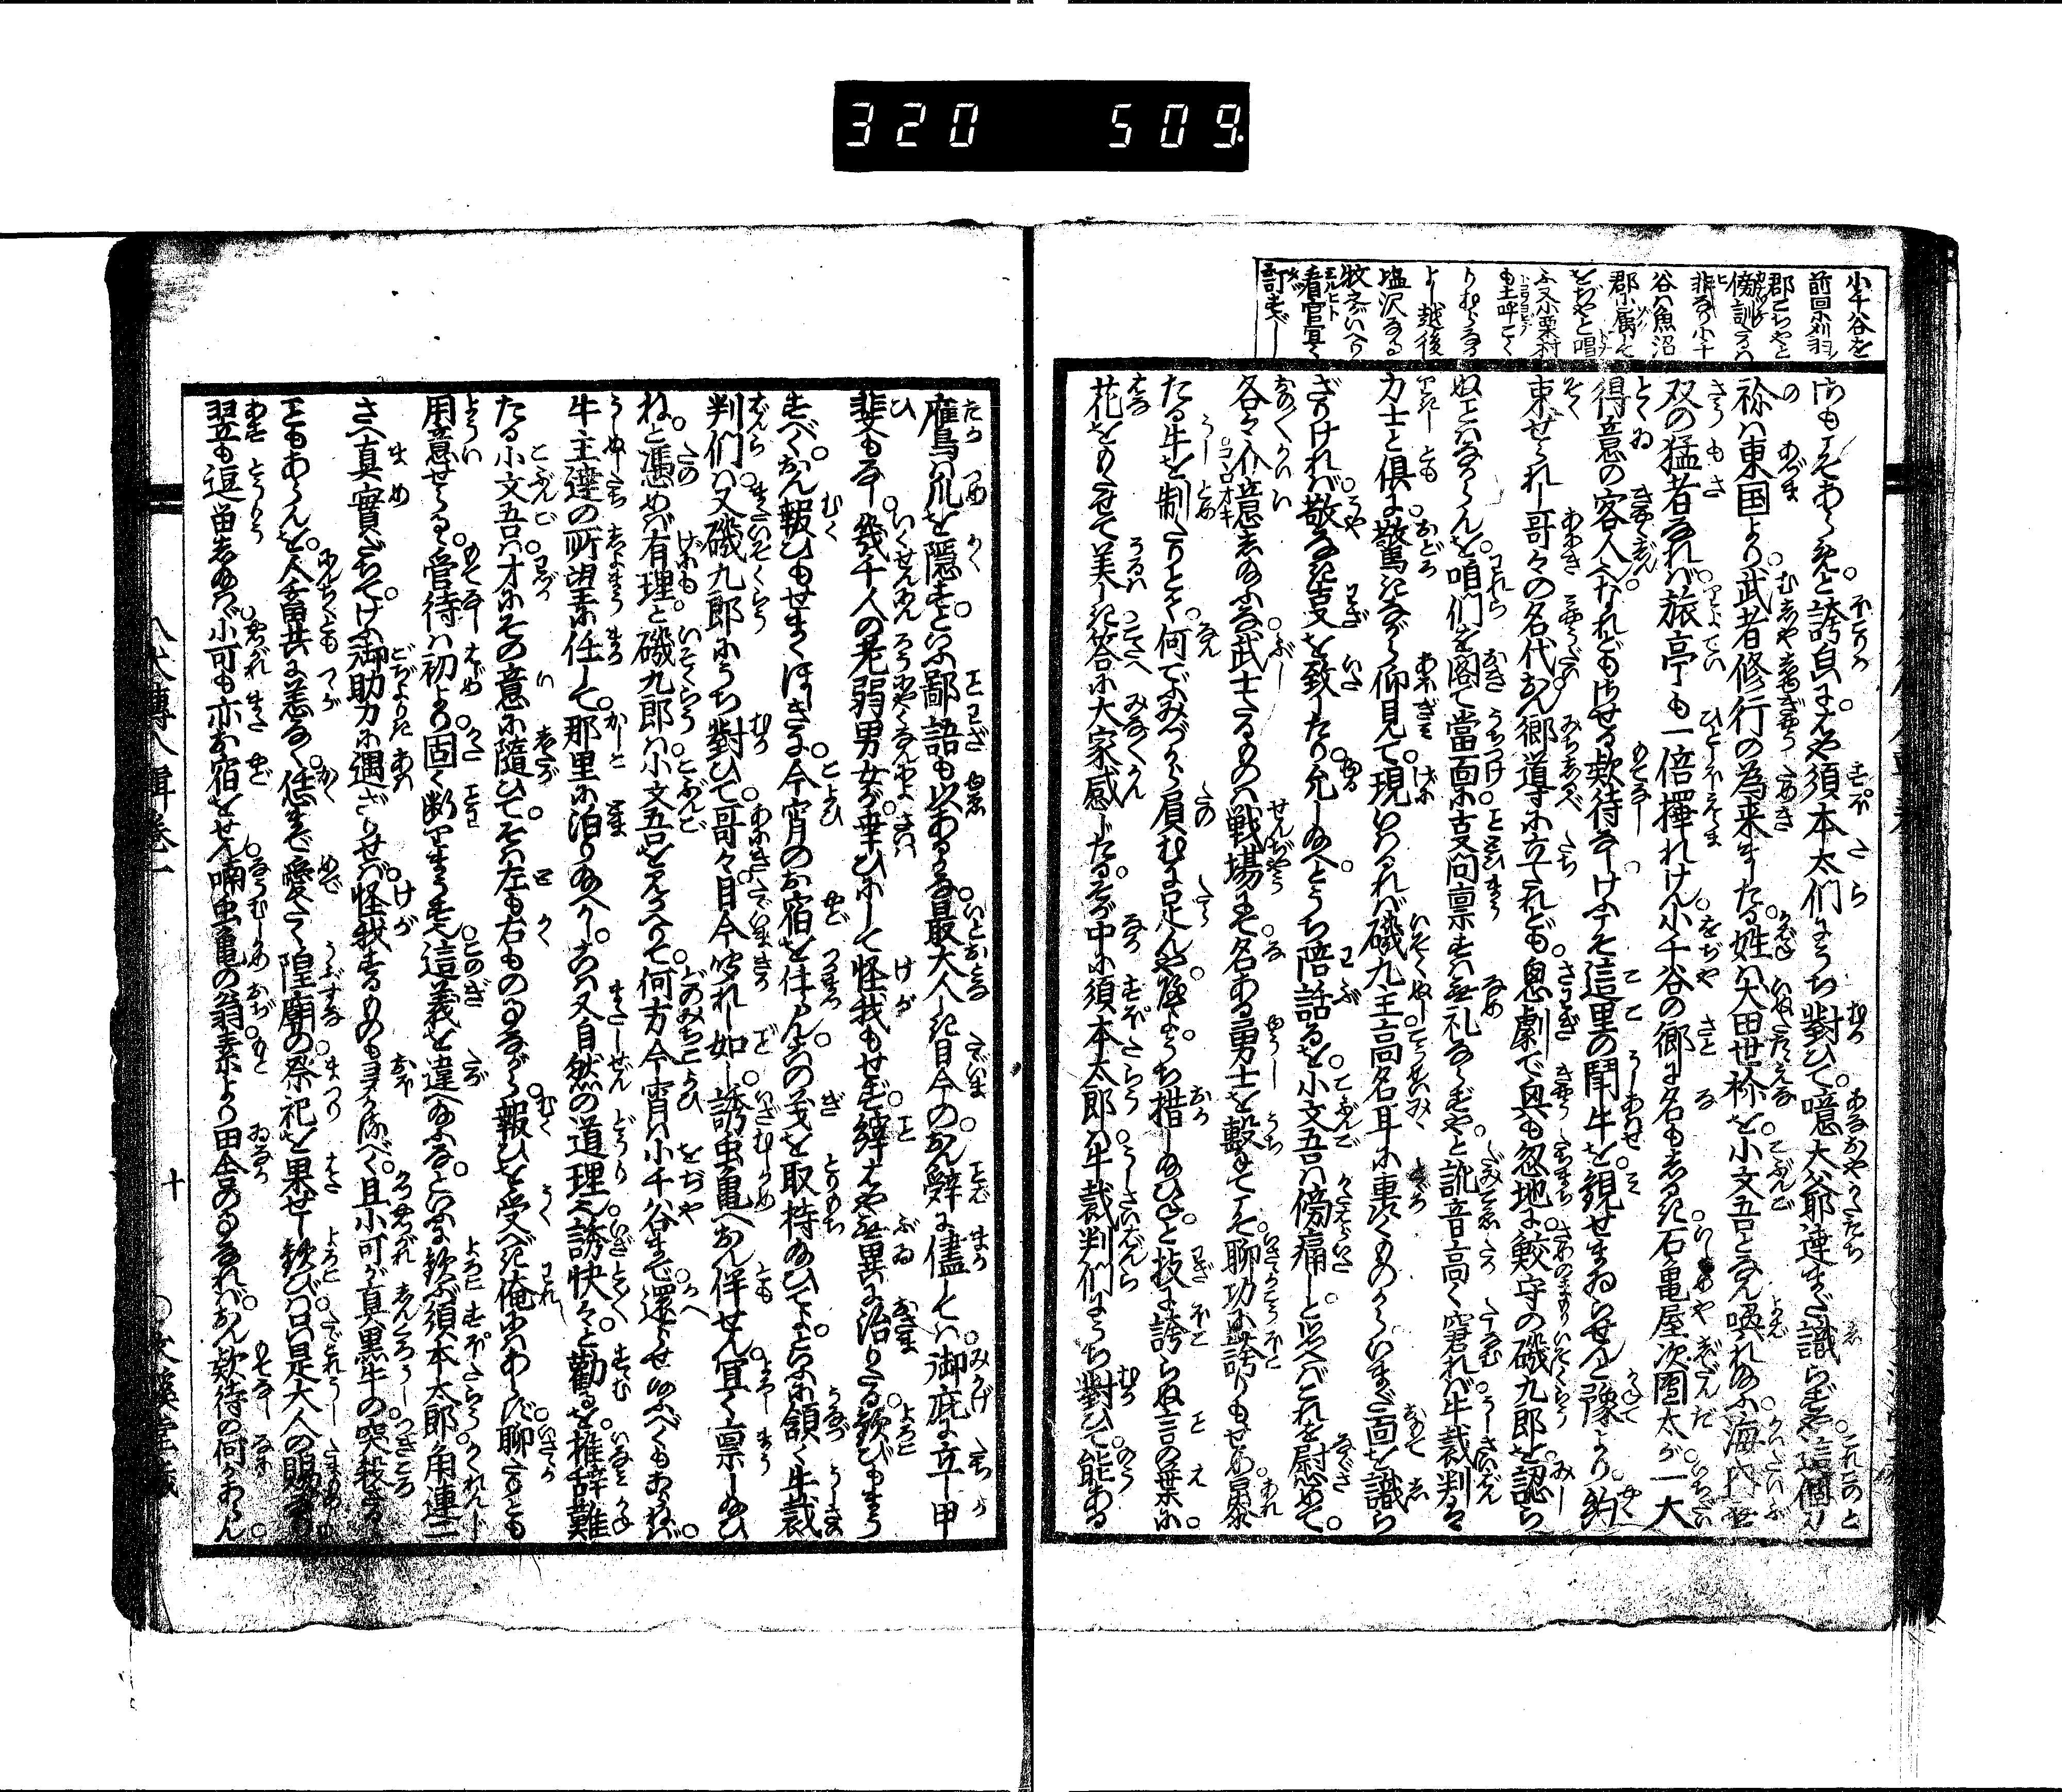 320 509
小千谷を
前回に刈羽
郡こちやと
傍訓せるハ
非なり小千
谷ハ魚沼
郡に属して
をぢやと唱
ふ又小栗村
も土呼てく
りむらなる
よし越後
塩沢なる
牧之がいへり
看官宜く
訂すべし
须本太們にうち對ひて。噫大爺達まだ識らずや。這個
東国より。武者修行の為来ましたる。姓ハ犬田世称を。小文吾となん喚れ給ふ。海内無
双の猛者なれバ。旅亭も一倍擇れけん。小千谷の郷に名もしるき。石亀屋次團太が一大
得意の客人なれども。させる欵待なし。けふそ這里の闘牛を。観せまゐらせんと豫より。約
束せられし哥々の名代。おん郷導に立たれども。怱劇で興も忽地に。鮫守の磯九郎を。認ら
ぬことハなからんを。咱們を閣て當面に。言問禀すハ無礼ならずや。と訛音高く窘れバ。牛裁判も
力士と倶に。驚きながら仰見て。現いハるれバ磯九主。高名耳に車くものから。いまだ面を識ら
ざりけれバ。敬なき言を致したり。允し給へとうち陪話るを。小文吾ハ傍痛しと思へバこれを慰めて。
各々介意し給ふな。武士たるものハ戦場にて。名ある勇士を撃てこそ。聊功に誇りもせめ。暴
たる牛を制たりとて。何でふみづから負むに足んや。うち措し給ひね。と技に誇らぬ言の葉に。
花をもたせて美しき。答に大家感じたる。そが中に須本太郎ハ。牛裁判們にうち對ひて。能ある
鷹ハ爪を隠すといふ。鄙語も以あるかな。最大人しき目今の。おん辞に儘してハ。御庇に立し甲
斐もなし。幾千人の老弱男女が。幸ひにして怪我もせず。縡はや無異に治りたる。歓びをまう
すべく。おん報ひもせまくほりするに。今宵のお宿を仕らん。この義を取持給ひてよ。といふに頷く牛裁
判們ハ。又磯九郎にうち對ひて。哥々目今聞れし如し。誘虫亀へおん伴せん。宜く禀し給ひ
ね。と憑めバ有理と磯九郎ハ。小文吾を見かへりて。何方今宵ハ小千谷まで。還らせ給ふべくもあらねバ。
牛主達の所望に任して。那里に泊り給へかし。こハ又自然の道理也。誘快々と勸るを。推辞難
たる小文吾ハ。才にその意に隨ひて。そハ左も右ものことながら。報ひを受べき俺にハあらず。聊たりとも
用意せらるゝ。管待ハ初より。固く断りまうす也。這義を違へ給ふな。といふに歓ぶ須本太郎。角連二
さへ真實だちて。けふ御助力に遇ざりせバ。怪我するものも多かるべく。且小可が真黒牛の。突殺さるゝ
こともあらんを。人畜共に恙なく。恁まで愛たく。隍廟の。祭祀を果せし歓びハ。是大人の賜なり
翌も逗畄し給ハヾ。小可も亦お宿をせん。喃虫亀の翁。素より田舎のことなれバ。おん欵待の何かあらん
八犬傳八輯卷一
十
○文溪堂藏